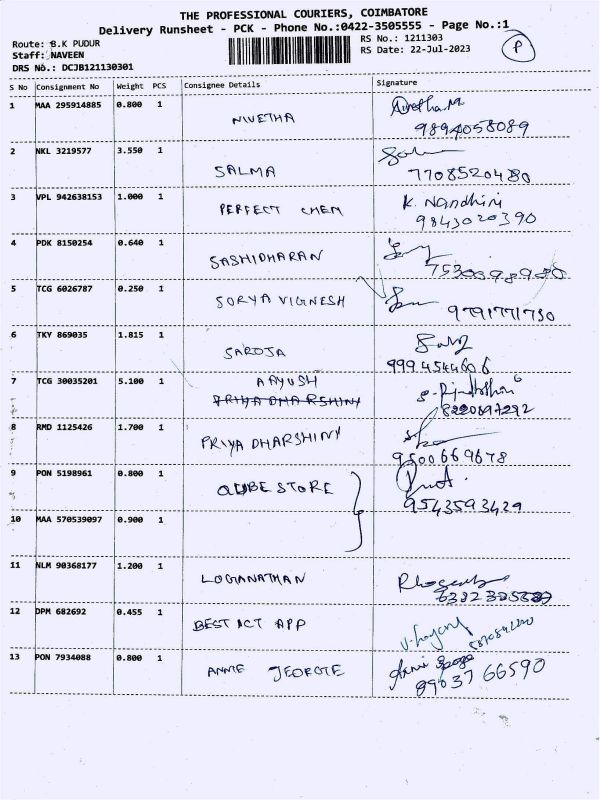 THE PROFESSIONAL COURIERS, COIMBATORE
Delivery Runsheet - PCK - Phone No.:0422-3505555 - Page No.:1
Route: B.K PUDUR RS No.: 1211303
Staff: NAVEEN RS Date: 22-Jul-2023 P
DRS No.: DCJB121130301
S No Consignment No Weight PCS Consignee Details Signature
1 MAA 295914885 0.800 1 NIVETHA
9894058089
2 NKL 3219577 3.550 1 SALMA
7708520480
3 VPL 942638153 1.000 1 PERFECT CHEM K. Nandhini
9843020390
4 PDK 8150254 0.640 1 SASHIDHARAN
5 TCG 6026787 0.250 1 SORYA VIGNESH
9791771730
6 TKY 869035 1.815 1 SAROJA
999 4544606
7 TCG 30035201 5.100 1 AAYUSH
PRIYA DHARSHINY
8220697292
8 RMD 1125426 1.700 1 PRIYA DHARSHINY
9500669678
9 PON 5198961 0.800 1 QUBE STORE
9543593429
10 MAA 570539097 0.900 1
11 NLM 90368177 1.200 1 LOGANATHAN
12 DPM 682692 0.455 1 BEST ICT APP
13 PON 7934088 0.800 1 ANNIE JEOROTE
89037 66590